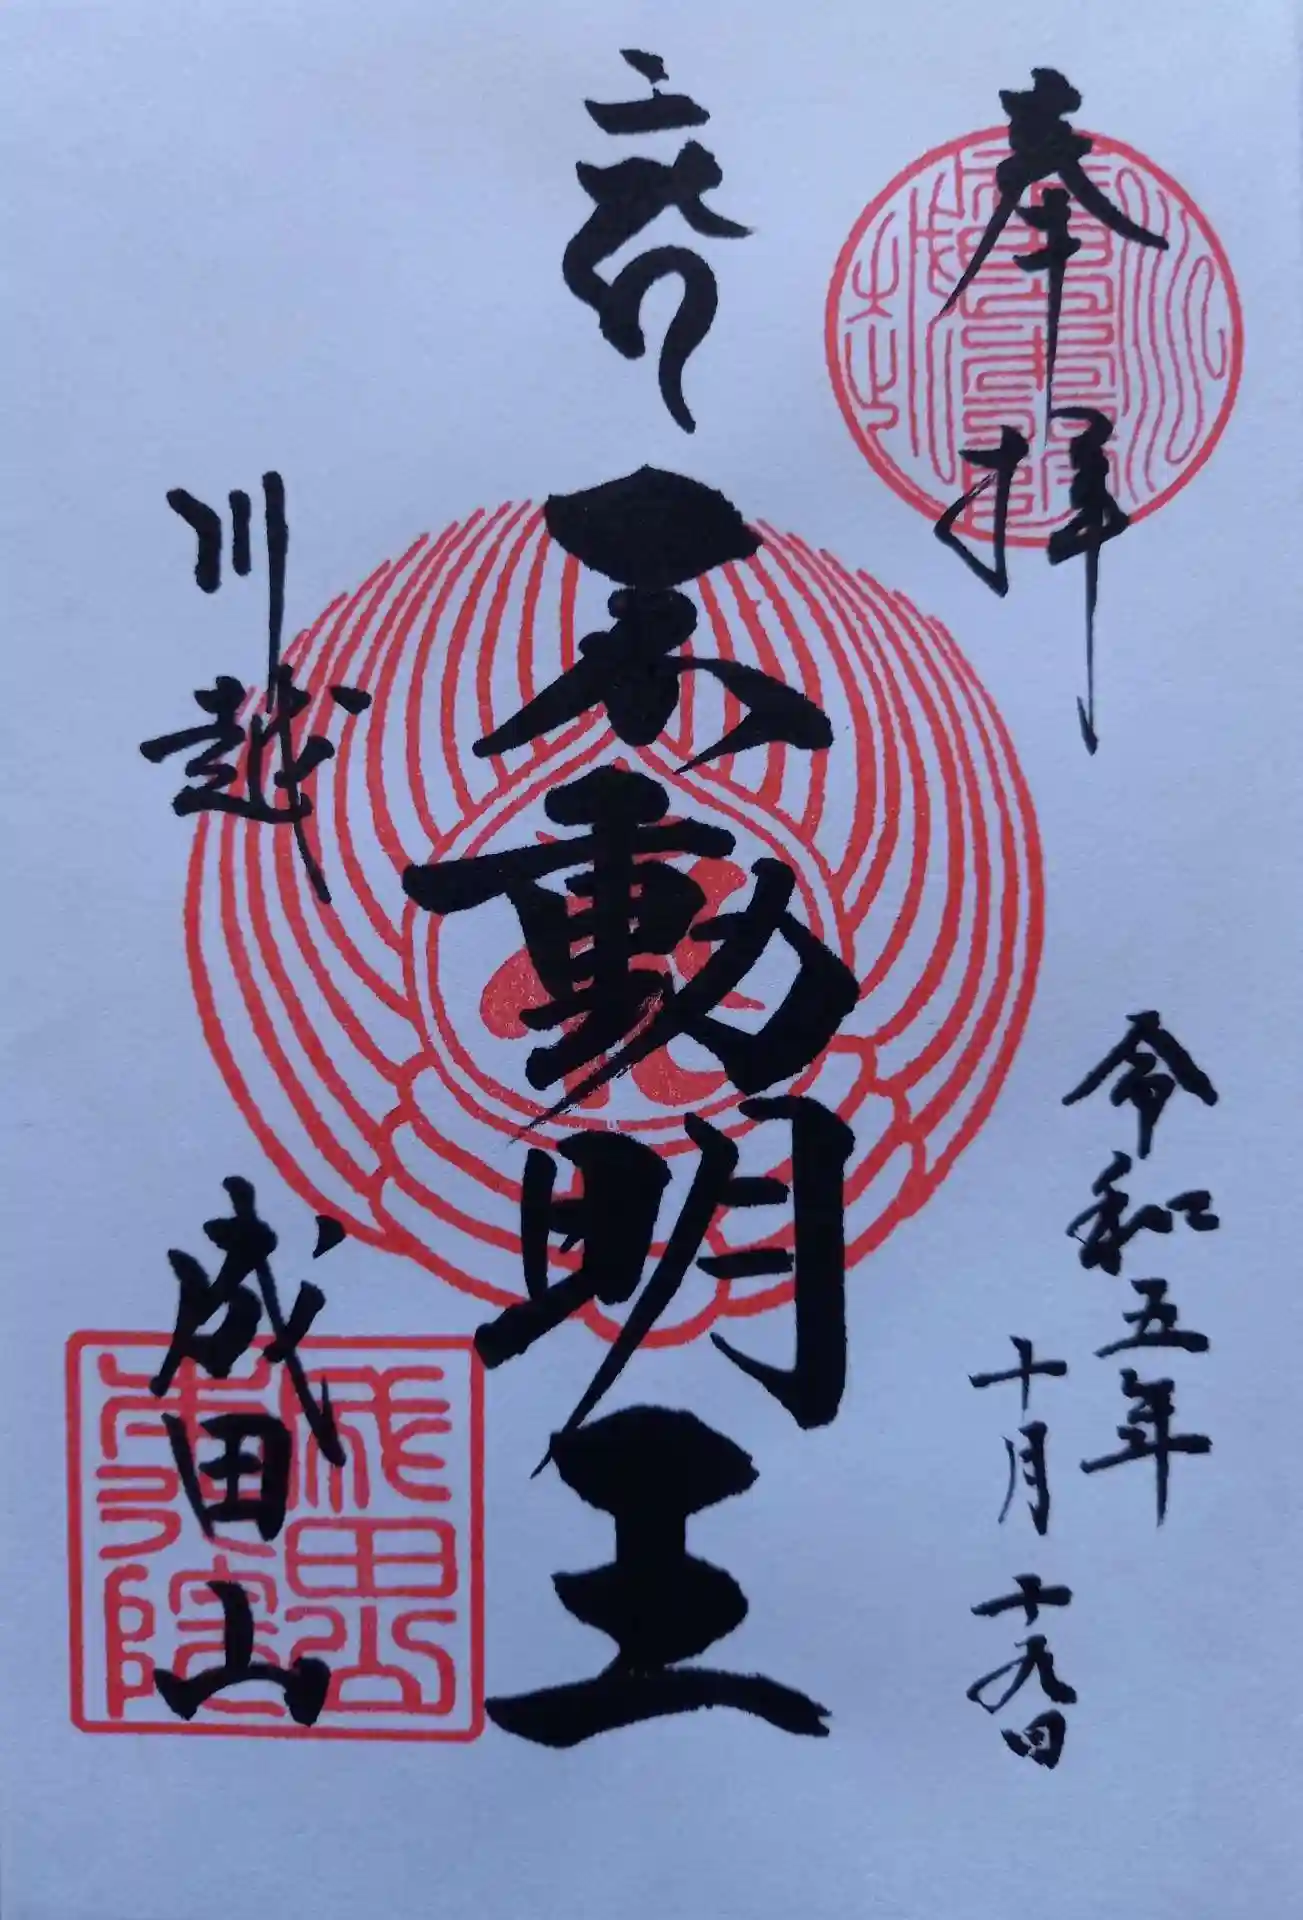 奉拝
令和五年
十月十九日
不動明王
川越
成田山